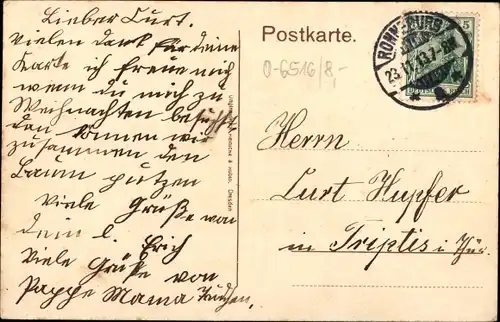 Lieber Curt.
Vielen Dank für deine
Karte ich freue mich
wenn du mich zu
Weihnachten besuchst
den können wir
zusammen den
Baum putzen
Viele Grüße von
dein l. Erich
Viele Grüße von
Pappe Mama
Postkarte.
0-6516/8,-
RONNEBURG
23.11.13.7-8N.
5
Herrn
Curt Hupfer
in Triptis i Thür.